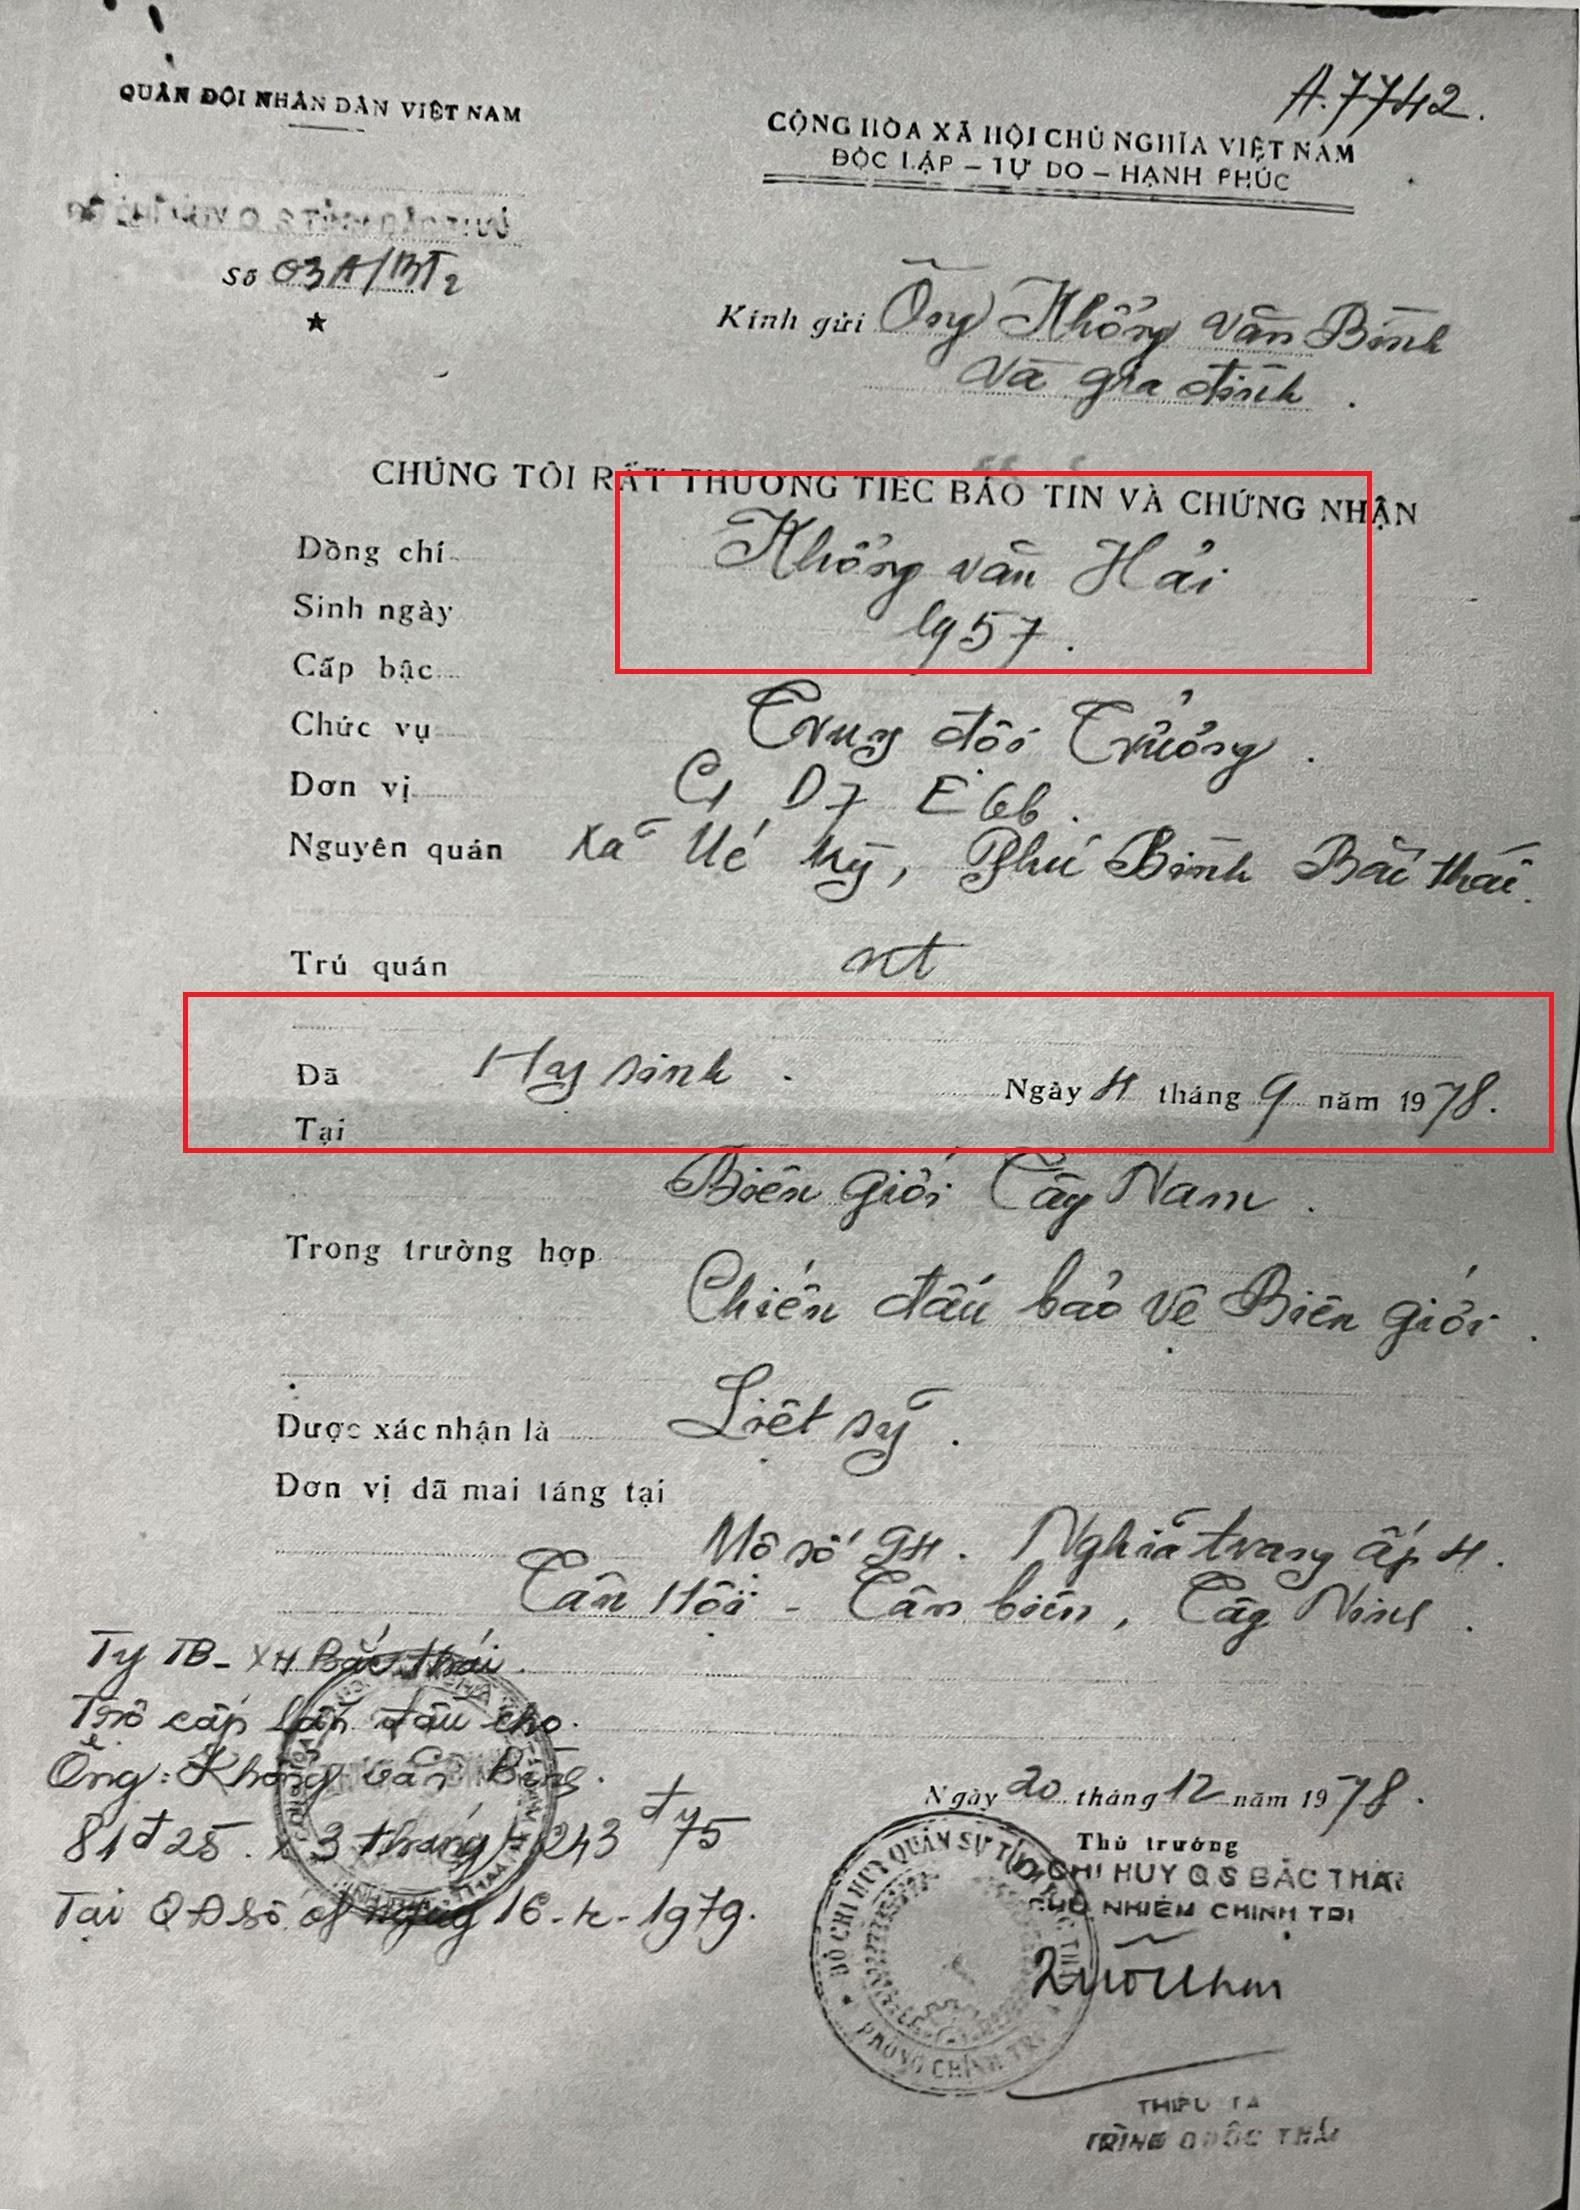 A.7742.
QUÂN ĐỘI NHÂN DÂN VIỆT NAM
CỘNG HÒA XÃ HỘI CHỦ NGHĨA VIỆT NAM
ĐỘC LẬP - TỰ DO - HẠNH PHÚC
Số 03A/BT2
Kính gửi Ông Khổng Văn Bình
và gia đình.
CHÚNG TÔI RẤT THƯƠNG TIẾC BÁO TIN VÀ CHỨNG NHẬN
Đồng chí Khổng văn Hải
Sinh ngày 1957.
Cấp bậc
Chức vụ Trung đội Trưởng.
Đơn vị C1 D7 E66.
Nguyên quán Xã Úc Kỳ, Phú Bình Bắc thái.
Trú quán nt
Đã Hy sinh. Ngày 4 tháng 9 năm 1978.
Tại
Biên giới Tây Nam.
Trong trường hợp
Chiến đấu bảo vệ Biên giới.
Được xác nhận là Liệt sỹ.
Đơn vị đã mai táng tại
Mộ số 94. Nghĩa trang ấp 4.
Tân Hội - Tân biên, Tây Ninh.
Ty TB-XH Bắc thái.
Trợ cấp lần đầu cho.
Ông: Khổng văn Bình.
81đ25. x 3 tháng = 243đ75
Tại QĐ số ngày 16-1979.
Ngày 20 tháng 12 năm 1978.
Thủ trưởng
CHỈ HUY QS BẮC THÁI
CHỦ NHIỆM CHÍNH TRỊ
BỘ CHỈ HUY QUÂN SỰ TỈNH
PHÒNG CHÍNH TRỊ
THIẾU TÁ
TRỊNH QUỐC THÁI